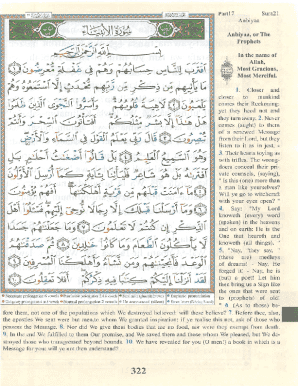 Part17 Sura21
Anbiyaa
سورة الأنبياء
Anbiyaa, or The
Prophets
In the name of
Allah,
Most Gracious,
Most Merciful.
بسم الله الرحمن الرحيم
اقترب للناس حسابهم وهم في غفلة معرضون
ما يأتيهم من ذكر من ربهم محدث إلا استمعوه وهم
يلعبون لاهية قلوبهم وأسروا النجوى الذين ظلموا
هل هذا إلا بشر مثلكم أفتأتون السحر وأنتم
تبصرون قال ربي يعلم القول في السماء والأرض
وهو السميع العليم بل قالوا أضغاث أحلام بل
افتراه بل هو شاعر فليأتنا بآية كما أرسل الأولون
ما آمنت قبلهم من قرية أهلكناها أفهم يؤمنون
وما أرسلنا قبلك إلا رجالا نوحي إليهم فاسألوا
أهل الذكر إن كنتم لا تعلمون وما جعلناهم جسدا
لا يأكلون الطعام وما كانوا خالدين ثم صدقناهم
الوعد فأنجيناهم ومن نشاء وأهلكنا المسرفين
لقد أنزلنا إليكم كتابا فيه ذكركم أفلا تعقلون
1. Closer and
closer to mankind
comes their Reckoning:
yet they heed not and
they turn away. 2. Never
comes (aught) to them
of a renewed Message
from their Lord, but they
listen to it as in jest,
3. Their hearts toying as
with trifles. The wrong-
doers conceal their pri-
vate counsels, (saying),
"Is this (one) more than
a man like yourselves?
Will ye go to witchcraft
with your eyes open?"
4. Say: "My Lord
knoweth (every) word
(spoken) in the heavens
and on earth: He is the
One that heareth and
knoweth (all things)."
5. "Nay," they say,
"(these are) medleys
of dreams! - Nay, He
forged it - Nay, he is
(but) a poet! Let him
then bring us a Sign like
the ones that were sent
to (prophets) of old!"
6. (As to those) be-
fore them, not one of the populations which We destroyed believed: will these believe? 7. Before thee, also,
the apostles We sent were but men, to whom We granted inspiration: if ye realise this not, ask of those who
possess the Message. 8. Nor did We give them bodies that ate no food, nor were they exempt from death.
9. In the end We fulfilled to them Our promise, and We saved them and those whom We pleased, but We de-
stroyed those who transgressed beyond bounds. 10. We have revealed for you (O men!) a book in which is a
Message for you: will ye not then understand?
322